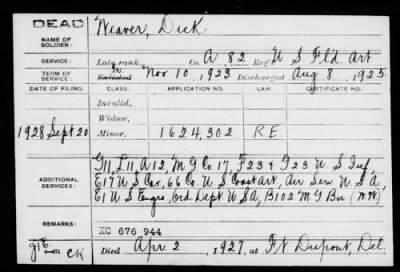 DEAD
NAME OF SOLDIER: Weaver, Dick
SERVICE: Late rank, Co. A 82 Reg't U S Fl'd Art
TERM OF SERVICE: Enlisted Nov 10, 1923 Discharged Aug 8, 1925
DATE OF FILING. CLASS. APPLICATION NO. LAW. CERTIFICATE NO.
Invalid,
Widow,
1928 Sept 20 Minor, 1624,302 RE
ADDITIONAL SERVICES: G11, L11 A12, M G Co. 17, F23 + G23 U. S Inf,
E17 U S Cav, 66 Co. U S Coast Art, Air Serv U S A,
E1 U S Engrs, Ord Dept U S A, B102 M G Bn (N. N)
REMARKS: XC 676 944
CK Died Apr 2, 1927, at Ft Dupont, Del.